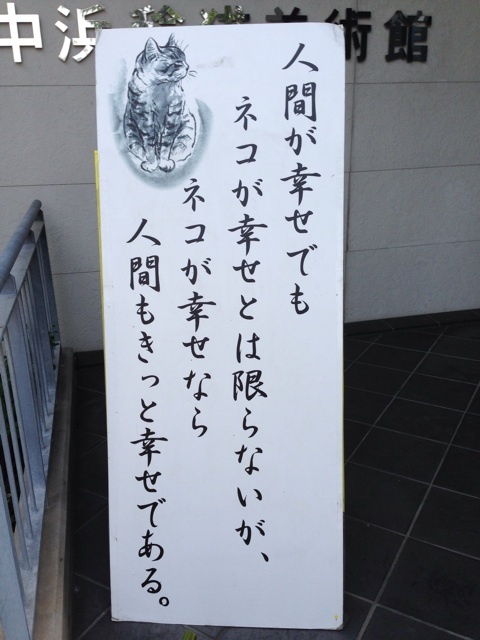 中浜
美術館
人間が幸せでも
ネコが幸せとは限らないが、
ネコが幸せなら
人間もきっと幸せである。